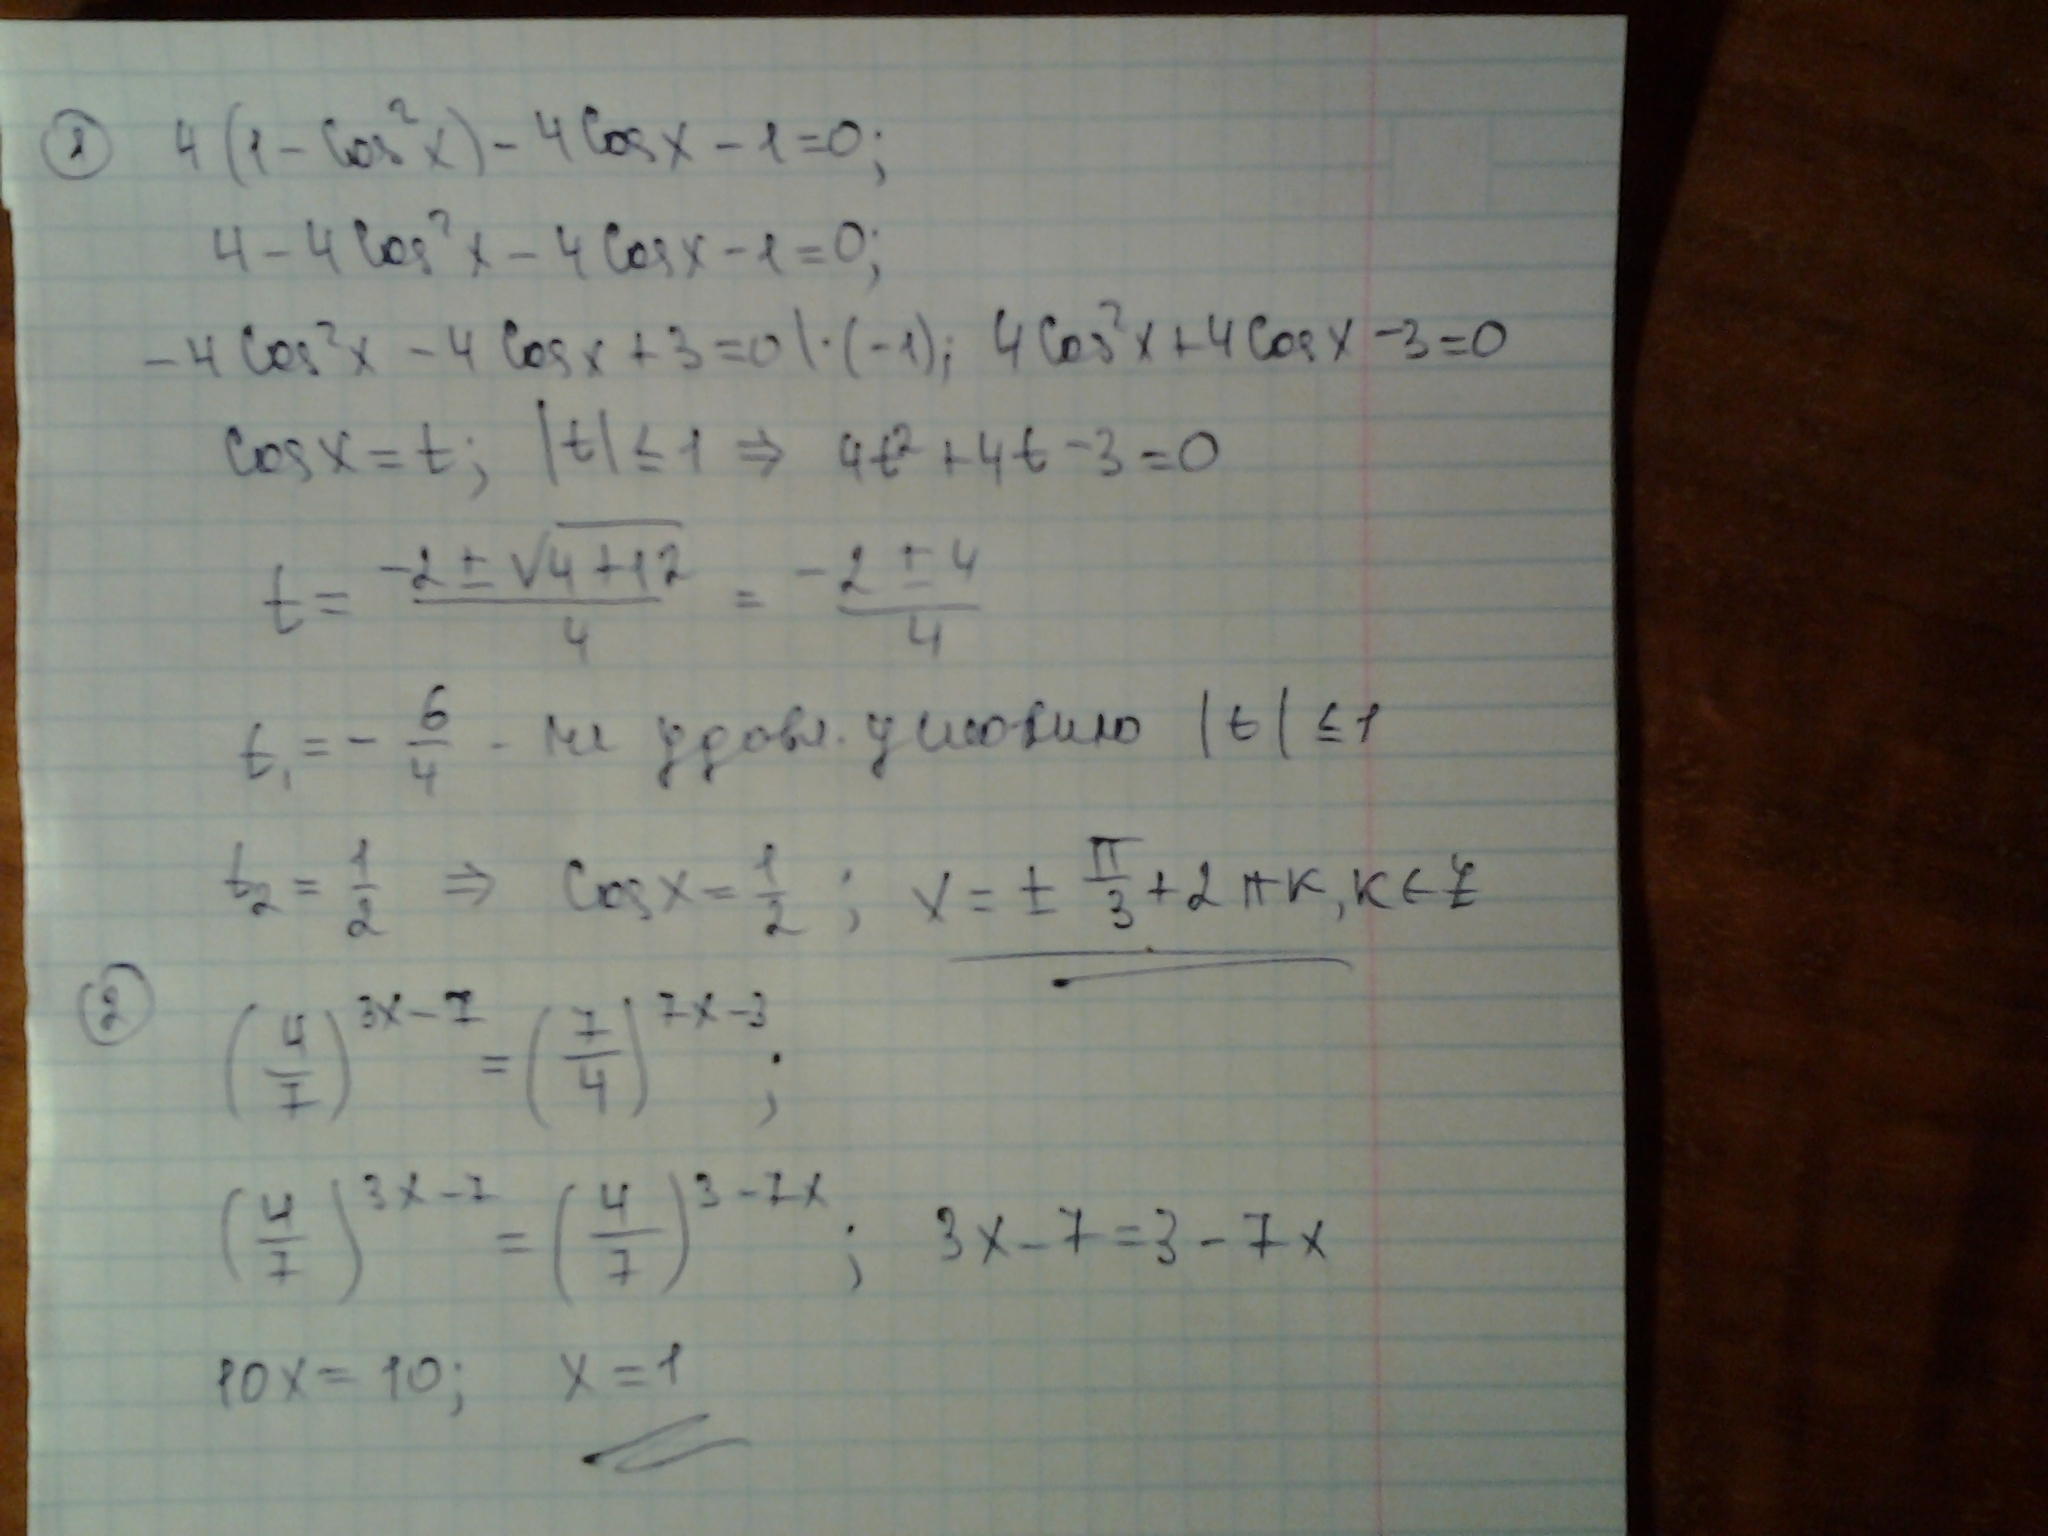 ① 4(1-cos²x)-4cosx-1=0;
4-4cos²x-4cosx-1=0;
-4cos²x-4cosx+3=0|·(-1); 4cos²x+4cosx-3=0
cosx=t; |t|≤1 ⇒ 4t²+4t-3=0
t= (-2±√(4+12))/4 = (-2±4)/4
t₁=-6/4 - не удовл. условию |t|≤1
t₂=1/2 ⇒ cosx=1/2; x=±π/3+2πк, к∈Z
② (4/7)^(3x-7)=(7/4)^(7x-3);
(4/7)^(3x-7)=(4/7)^(3-7x); 3x-7=3-7x
10x=10; x=1